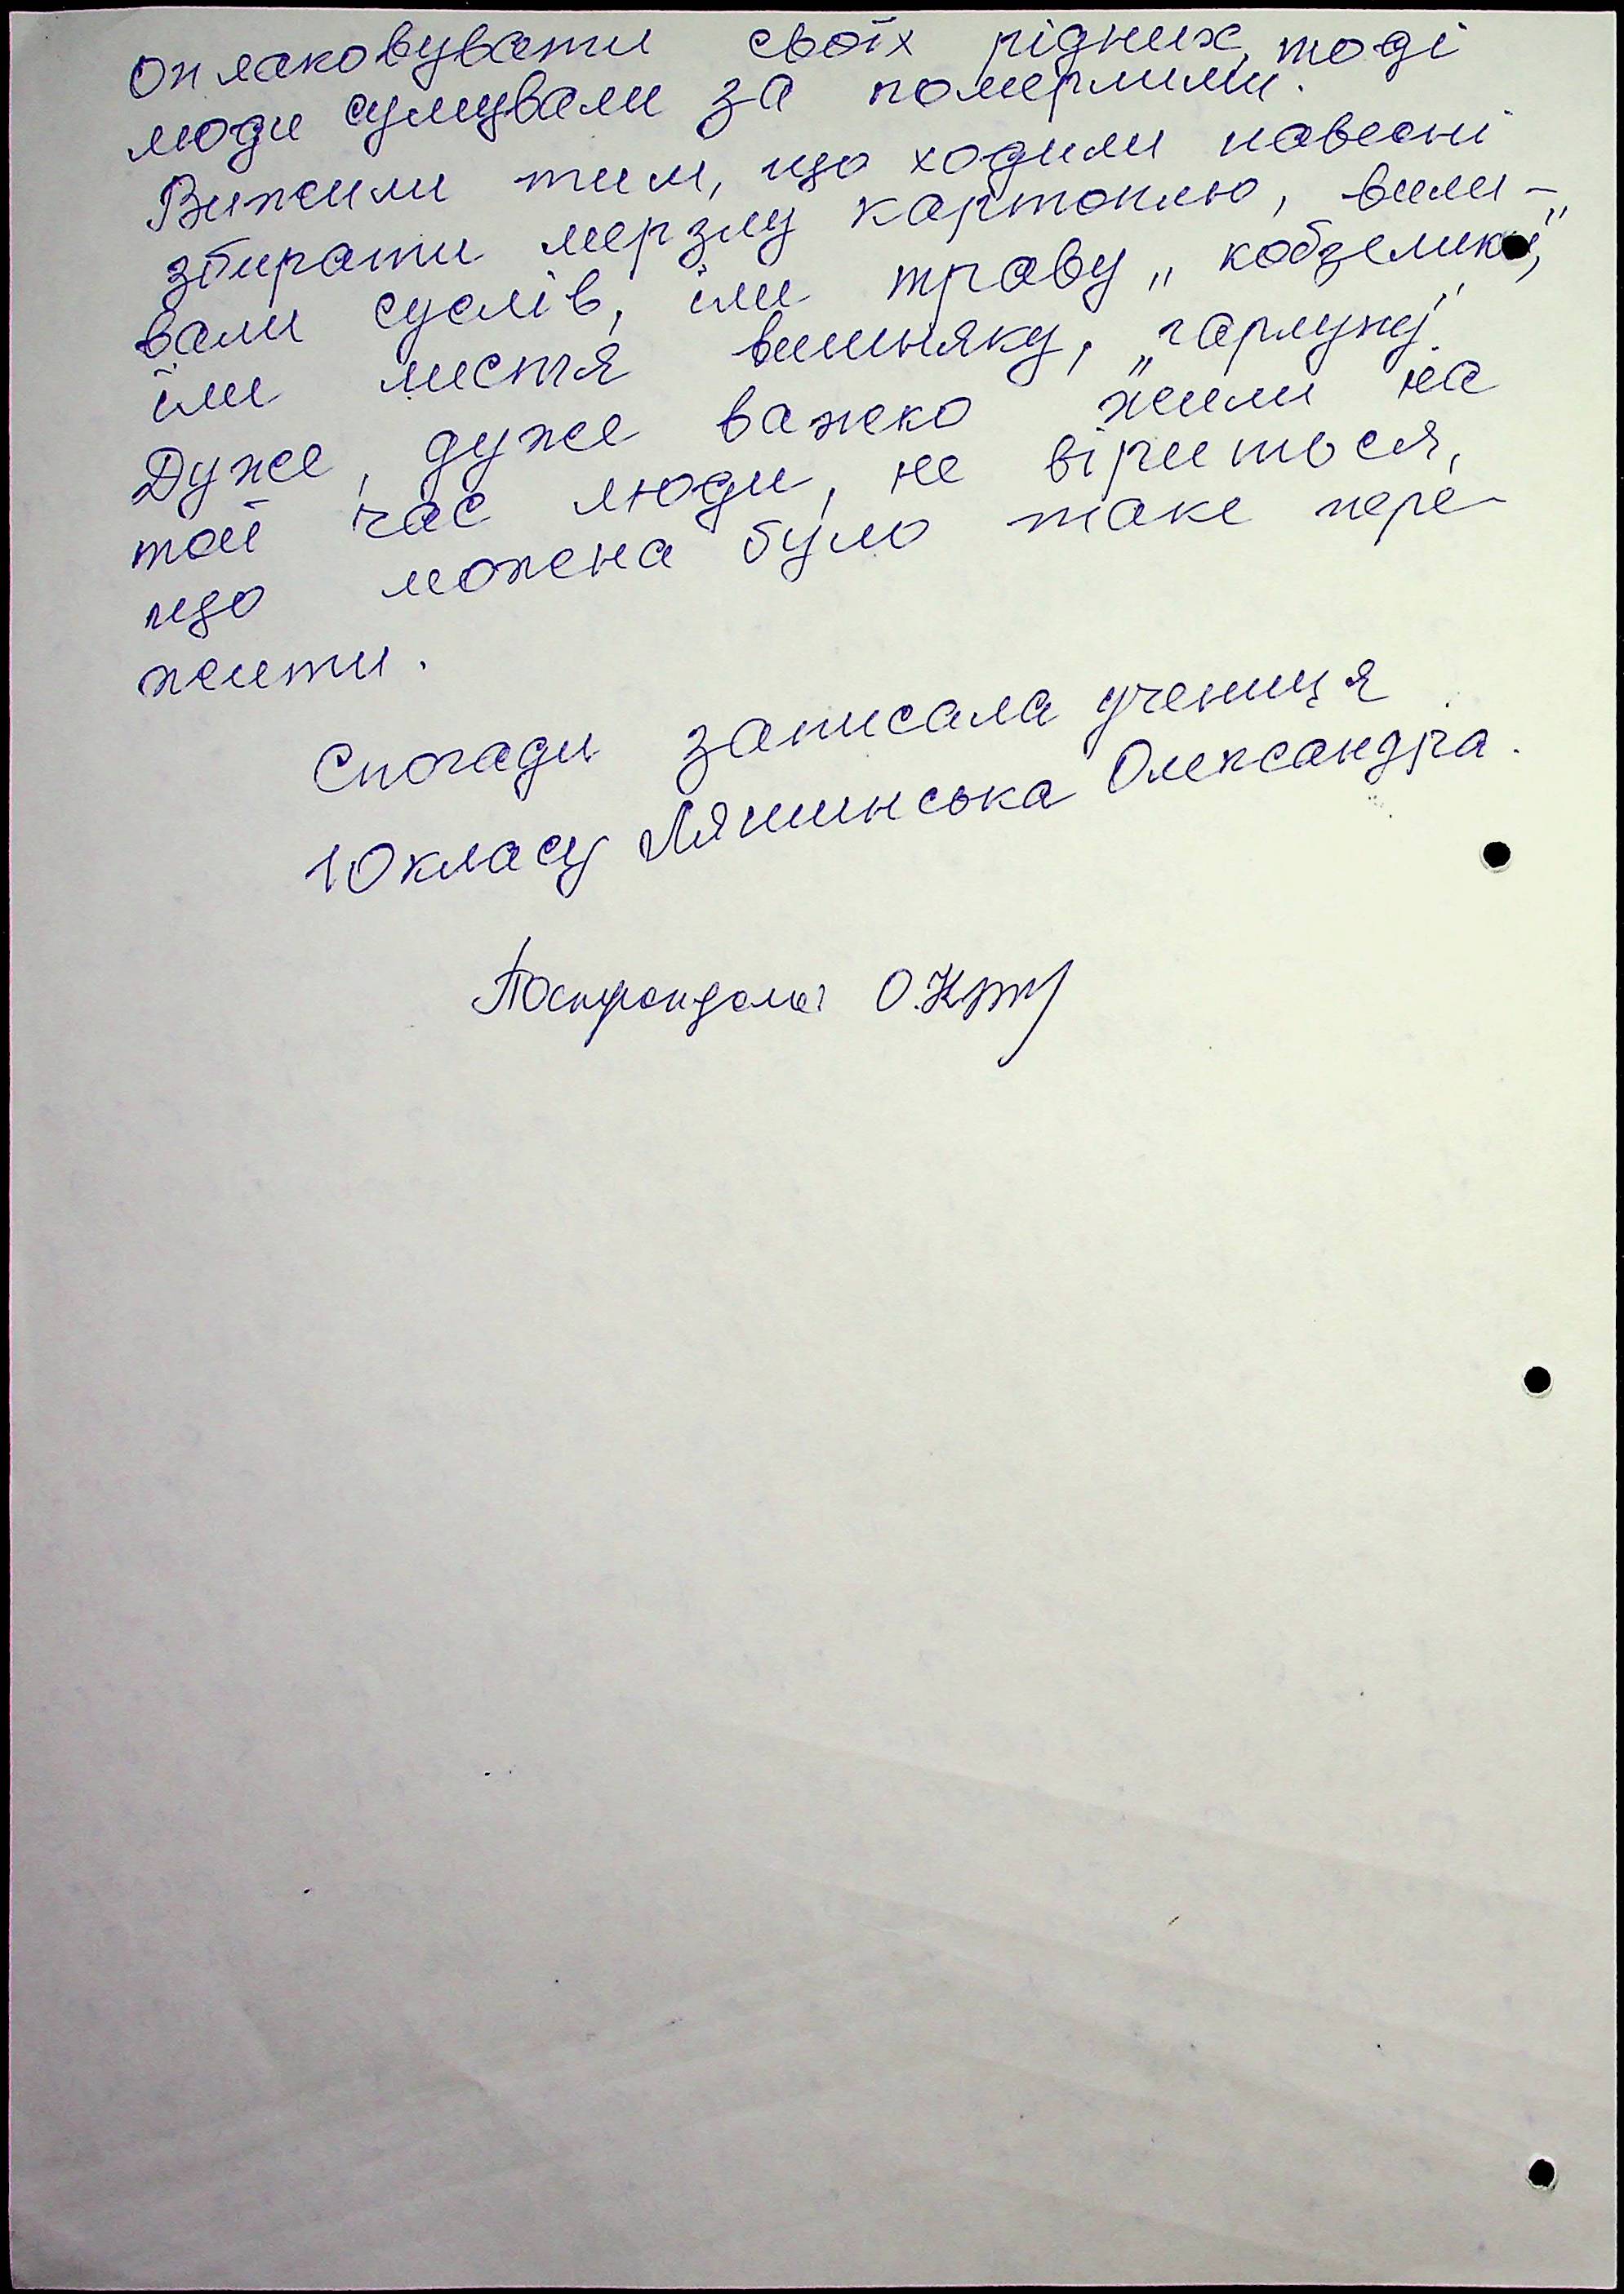 оплаковувати своїх рідних, тоді
люди сумували за померлими.
Вижили тим, що ходили навесні
збирати мерзлу картоплю, вили-
вали суслів, їли траву „кобзелики",
їли листя вишняку, „гарлупу".
Дуже, дуже важко жили на
той час люди, не віриться,
що можна було таке пере-
жити.
Спогади записала учениця
10 класу Ляшинська Олександра.
О.